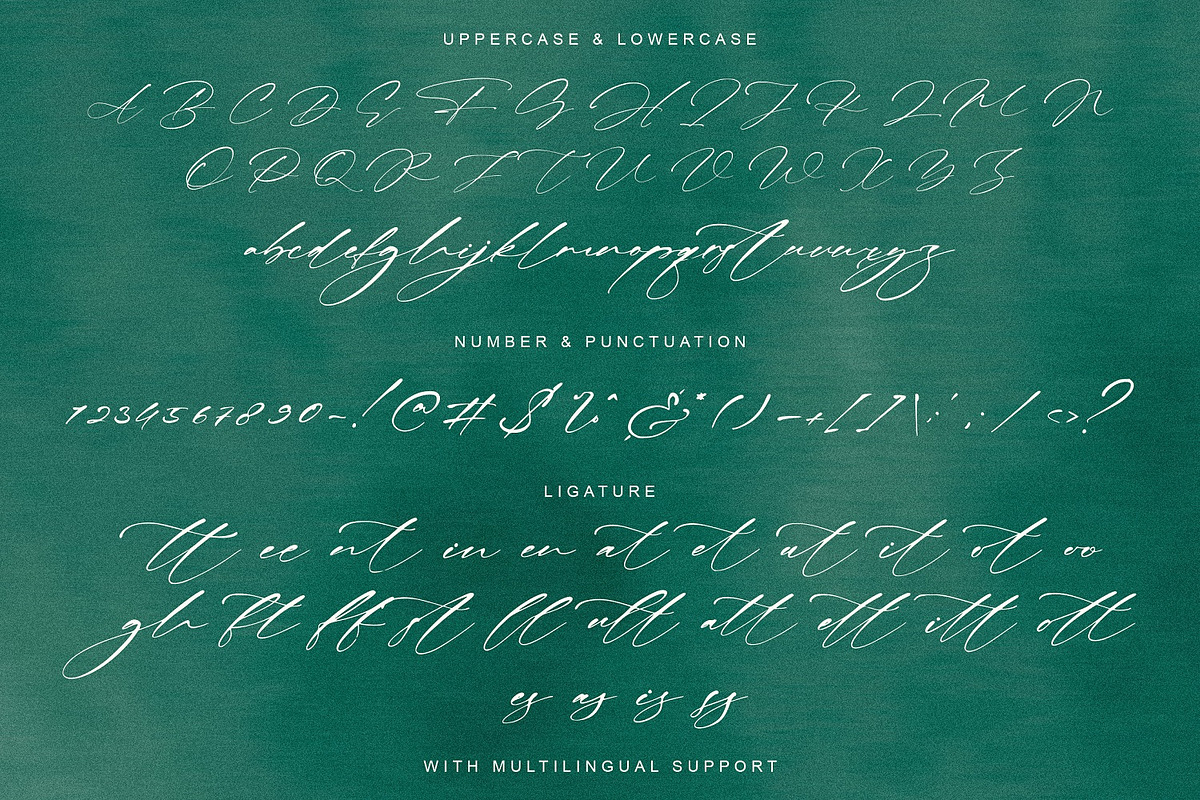 UPPERCASE & LOWERCASE
A B C D E F G H I J K L M N
O P Q R S T U V W X Y Z
abcdefghijklmnopqrstuvwxyz
NUMBER & PUNCTUATION
1234567890-!@#$%^&*()-+[]\:";,/<>?
LIGATURE
tt ee nt in en at et ut it ot oo
gh ft ff st ll utt att ett itt ott
es as is ss
WITH MULTILINGUAL SUPPORT